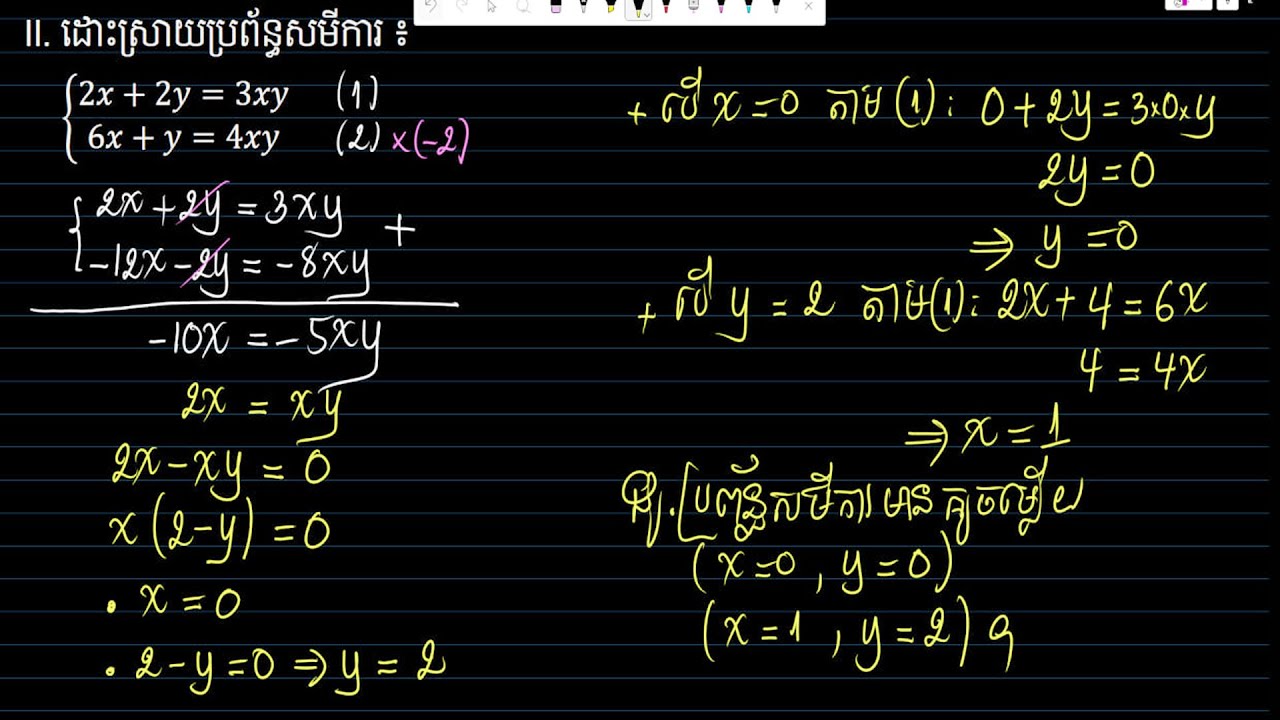 II. ដោះស្រាយប្រព័ន្ធសមីការ ៖
2x + 2y = 3xy (1)
6x + y = 4xy (2) ×(-2)
2x + 2y = 3xy
-12x - 2y = -8xy +
-10x = -5xy
2x = xy
2x - xy = 0
x(2 - y) = 0
• x = 0
• 2 - y = 0 ⇒ y = 2
+ បើ x = 0 តាម (1): 0 + 2y = 3×0×y
2y = 0
⇒ y = 0
+ បើ y = 2 តាម (1): 2x + 4 = 6x
4 = 4x
⇒ x = 1
ដូ.ប្រព័ន្ធសមីការមានគូចម្លើយ
(x = 0 , y = 0)
(x = 1 , y = 2) ។